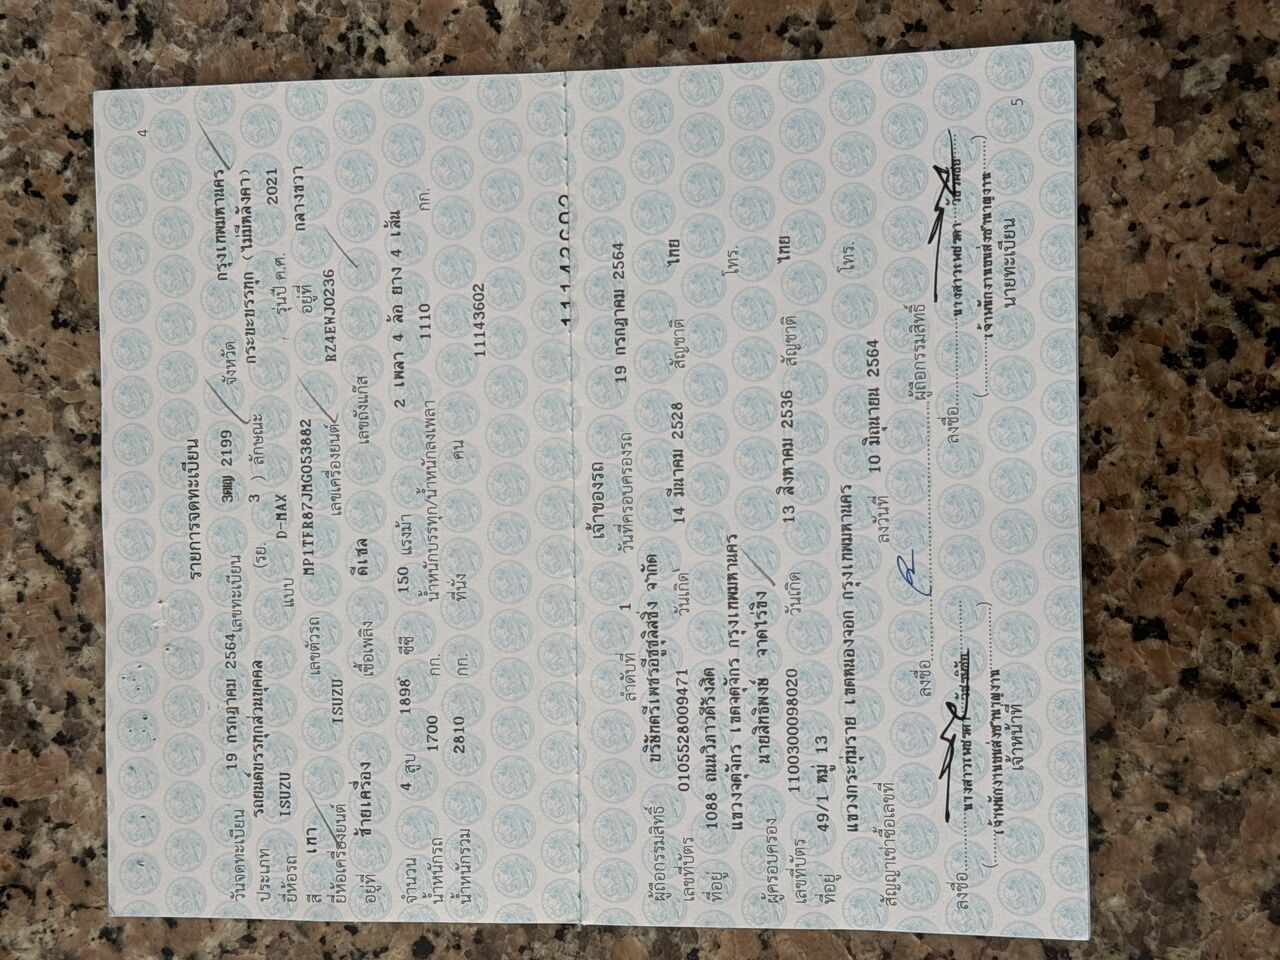 4
รายการจดทะเบียน
วันจดทะเบียน 19 กรกฎาคม 2564 เลขทะเบียน 3ฒฌ 2199 จังหวัด กรุงเทพมหานคร
ประเภท รถยนต์บรรทุกส่วนบุคคล (รย. 3 ) ลักษณะ กระบะบรรทุก (ไม่มีหลังคา)
ยี่ห้อรถ ISUZU แบบ D-MAX รุ่นปี ค.ศ. 2021
สี เทา เลขตัวรถ MP1TFR87JMG053882 อยู่ที่ กลางขวา
ยี่ห้อเครื่องยนต์ ISUZU เลขเครื่องยนต์ RZ4EWJ0236
อยู่ที่ ซ้ายเครื่อง เชื้อเพลิง ดีเซล เลขถังแก๊ส
จำนวน 4 สูบ 1898 ซีซี 150 แรงม้า 2 เพลา 4 ล้อ ยาง 4 เส้น
น้ำหนักรถ 1700 กก. น้ำหนักบรรทุก/น้ำหนักลงเพลา 1110 กก.
น้ำหนักรวม 2810 กก. ที่นั่ง คน 11143602
11143602
เจ้าของรถ
ลำดับที่ 1 วันที่ครอบครองรถ 19 กรกฎาคม 2564
ผู้ถือกรรมสิทธิ์ บริษัทตรีเพชรอีซูซุลิสซิ่ง จำกัด
เลขที่บัตร 0105528009471 วันเกิด 14 มีนาคม 2528 สัญชาติ ไทย
ที่อยู่ 1088 ถนนวิภาวดีรังสิต
แขวงจตุจักร เขตจตุจักร กรุงเทพมหานคร โทร.
ผู้ครอบครอง นายสิทธิพงษ์ จาดไร่ขิง
เลขที่บัตร 1100300098020 วันเกิด 13 สิงหาคม 2536 สัญชาติ ไทย
ที่อยู่ 49/1 หมู่ 13
แขวงกระทุ่มราย เขตหนองจอก กรุงเทพมหานคร โทร.
สัญญาเช่าซื้อเลขที่ ลงวันที่ 10 มิถุนายน 2564
ลงชื่อ ผู้ถือกรรมสิทธิ์
ลงชื่อ ลงชื่อ
(เจ้าพนักงานขนส่งชำนาญงาน) (เจ้าพนักงานขนส่งชำนาญงาน)
เจ้าหน้าที่ นายทะเบียน
5